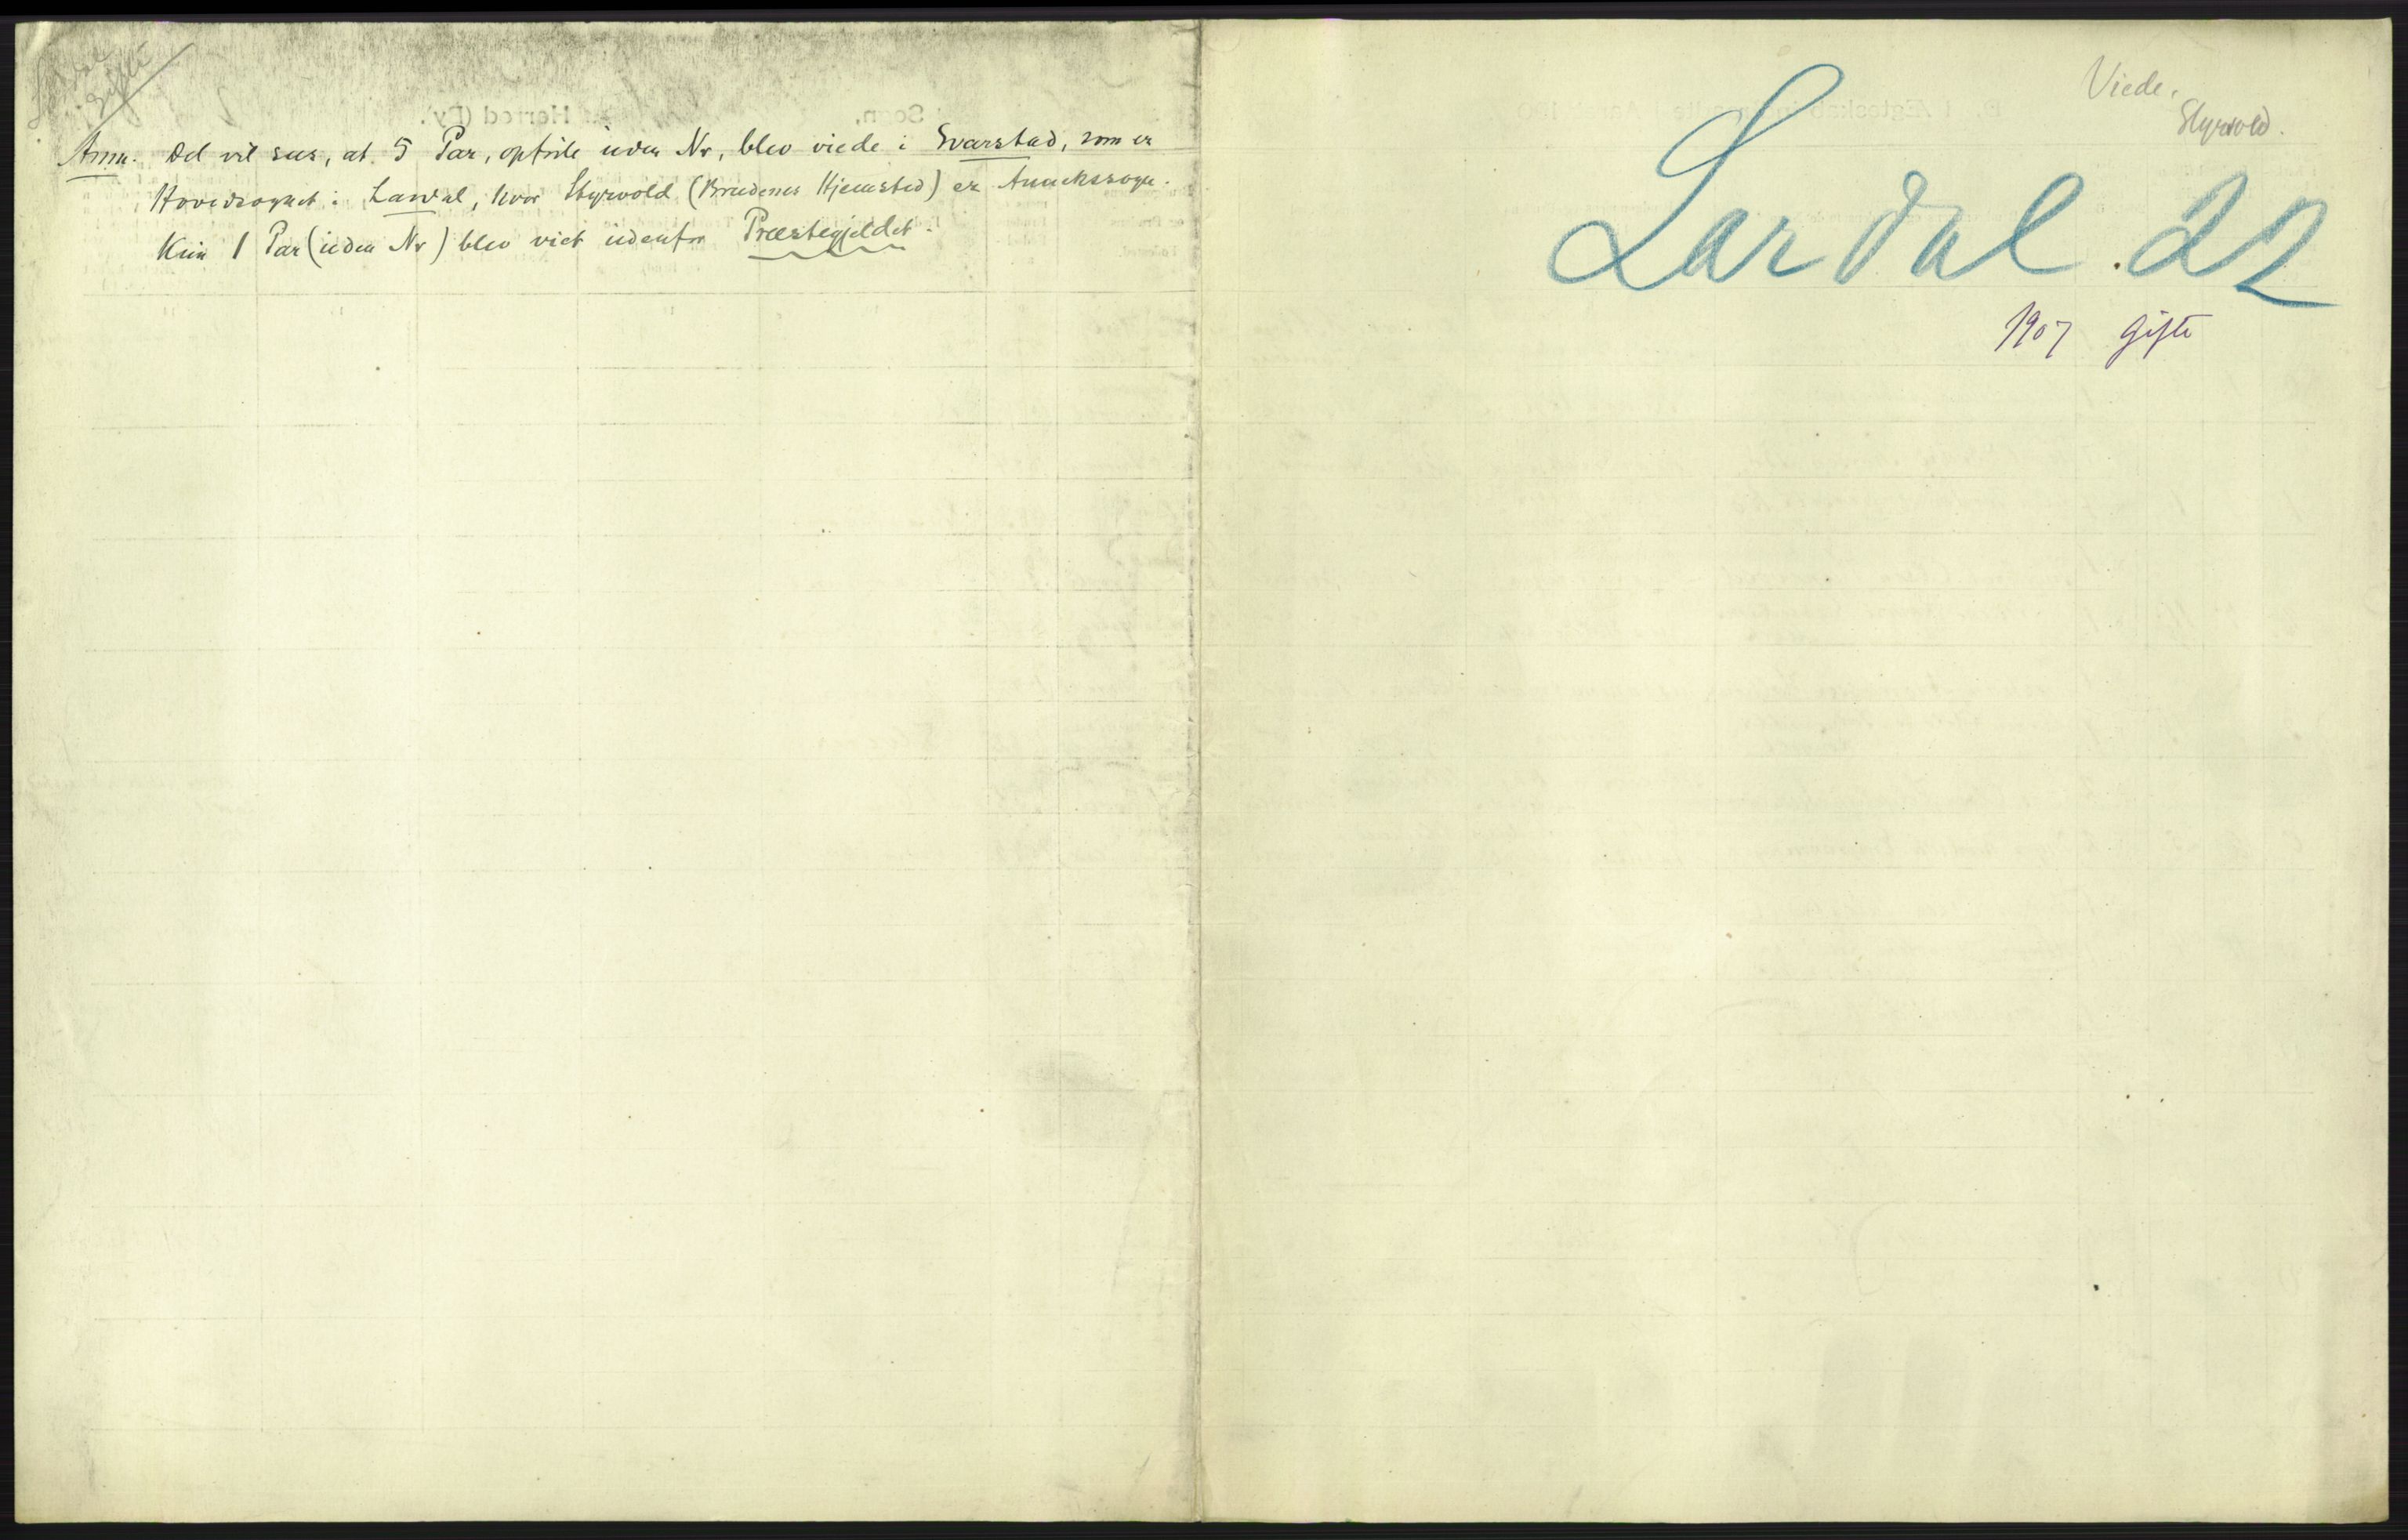 Anm. Det vil sees, at 5 Par, opførte uden Nr, blev viede i Svarstad, som er
Hovedsognet i Lardal, hvor Styrvold (Brudenes Hjemsted) er Annekssogn.
Kun 1 Par (uden Nr) blev viet udenfor Præstegjeldet.
Viede,
Styrvold.
Lardal. 22
1907 Gifte